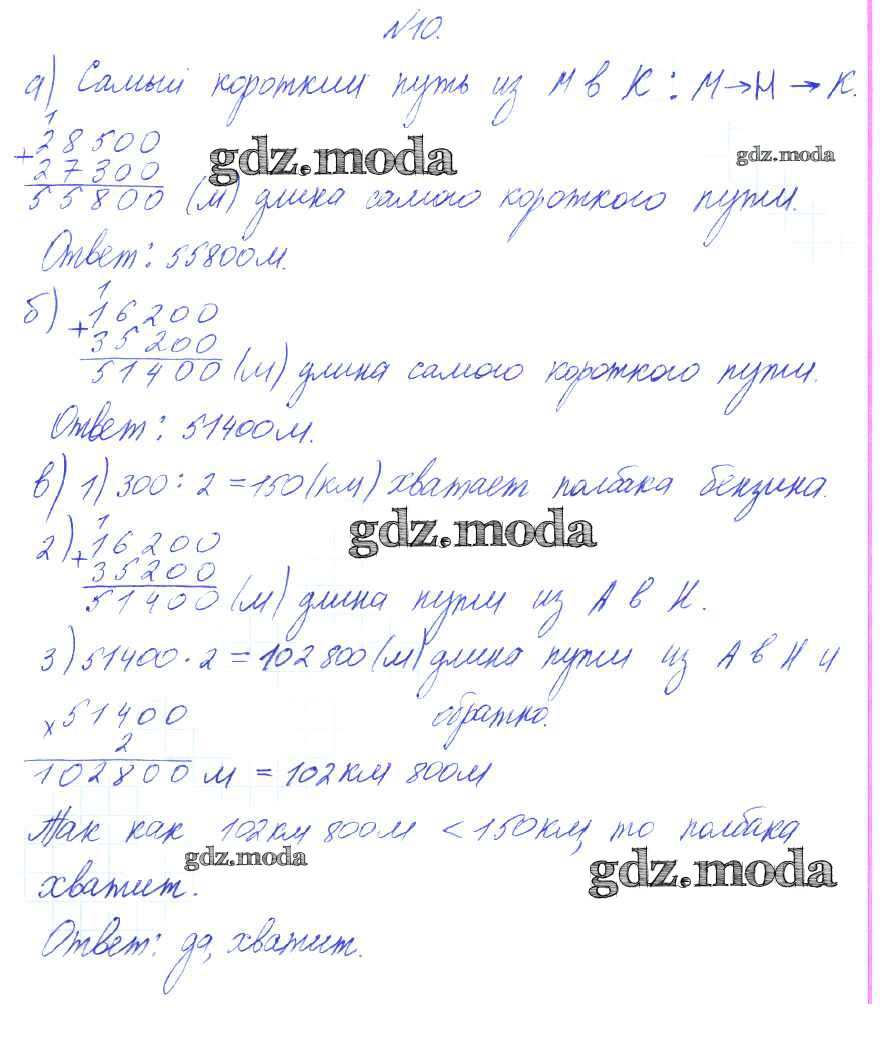 №10.
а) Самый короткий путь из М в К : М → Н → К.
1
+ 28500
27300
gdz.moda
gdz.moda
55800 (м) длина самого короткого пути.
Ответ: 55800м.
б) 1
+ 16200
35200
51400 (м) длина самого короткого пути.
Ответ: 51400м.
в) 1) 300 : 2 = 150 (км) хватает полбака бензина.
gdz.moda
1
2) + 16200
35200
51400 (м) длина пути из А в Н.
3) 51400 · 2 = 102800 (м) длина пути из А в Н и
обратно.
× 51400
2
102800 м = 102км 800м
Так как 102км 800м < 150км, то полбака
gdz.moda
gdz.moda
хватит.
Ответ: да, хватит.